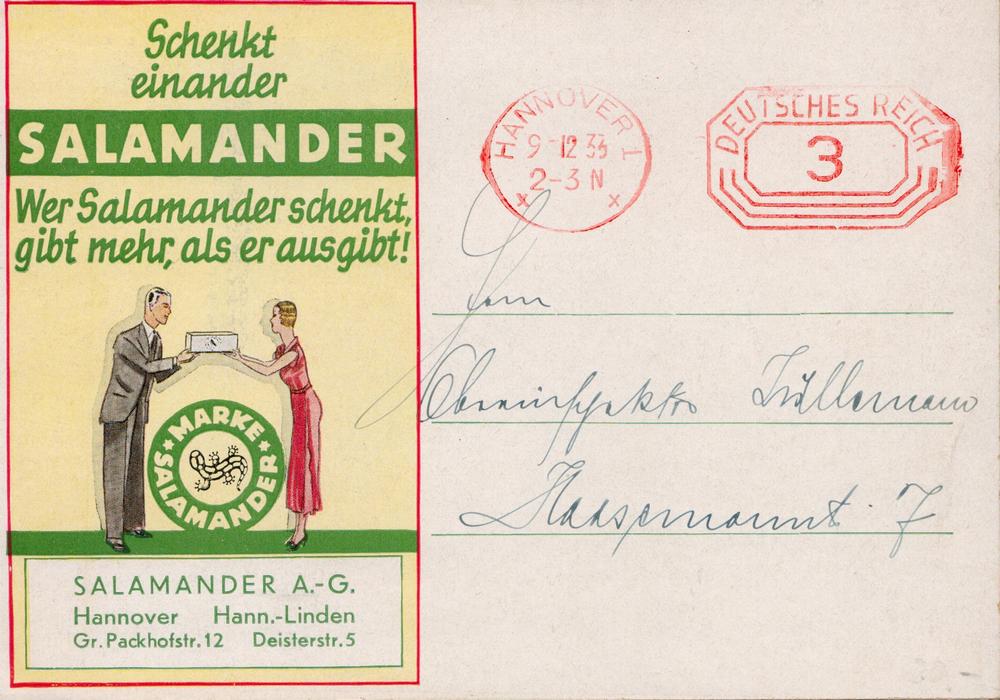 Schenkt
einander
SALAMANDER
Wer Salamander schenkt,
gibt mehr, als er ausgibt!
MARKE
SALAMANDER
SALAMANDER A.-G.
Hannover Hann.-Linden
Gr. Packhofstr. 12 Deisterstr. 5
HANNOVER 1
9-12 33
2-3 N
x x
DEUTSCHES REICH
3
Herrn
Oberinspektor
7